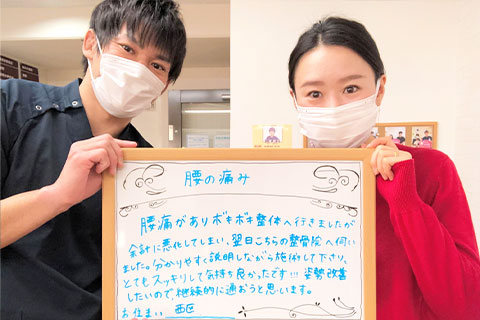 腰の痛み
腰痛がありボキボキ整体へ行きましたが
余計に悪化してしまい、翌日こちらの整骨院へ伺い
ました。分かりやすく説明しながら施術して下さり、
とてもスッキリして気持ち良かったです!!! 姿勢改善
したいので継続的に通おうと思います。
お住まい 西区